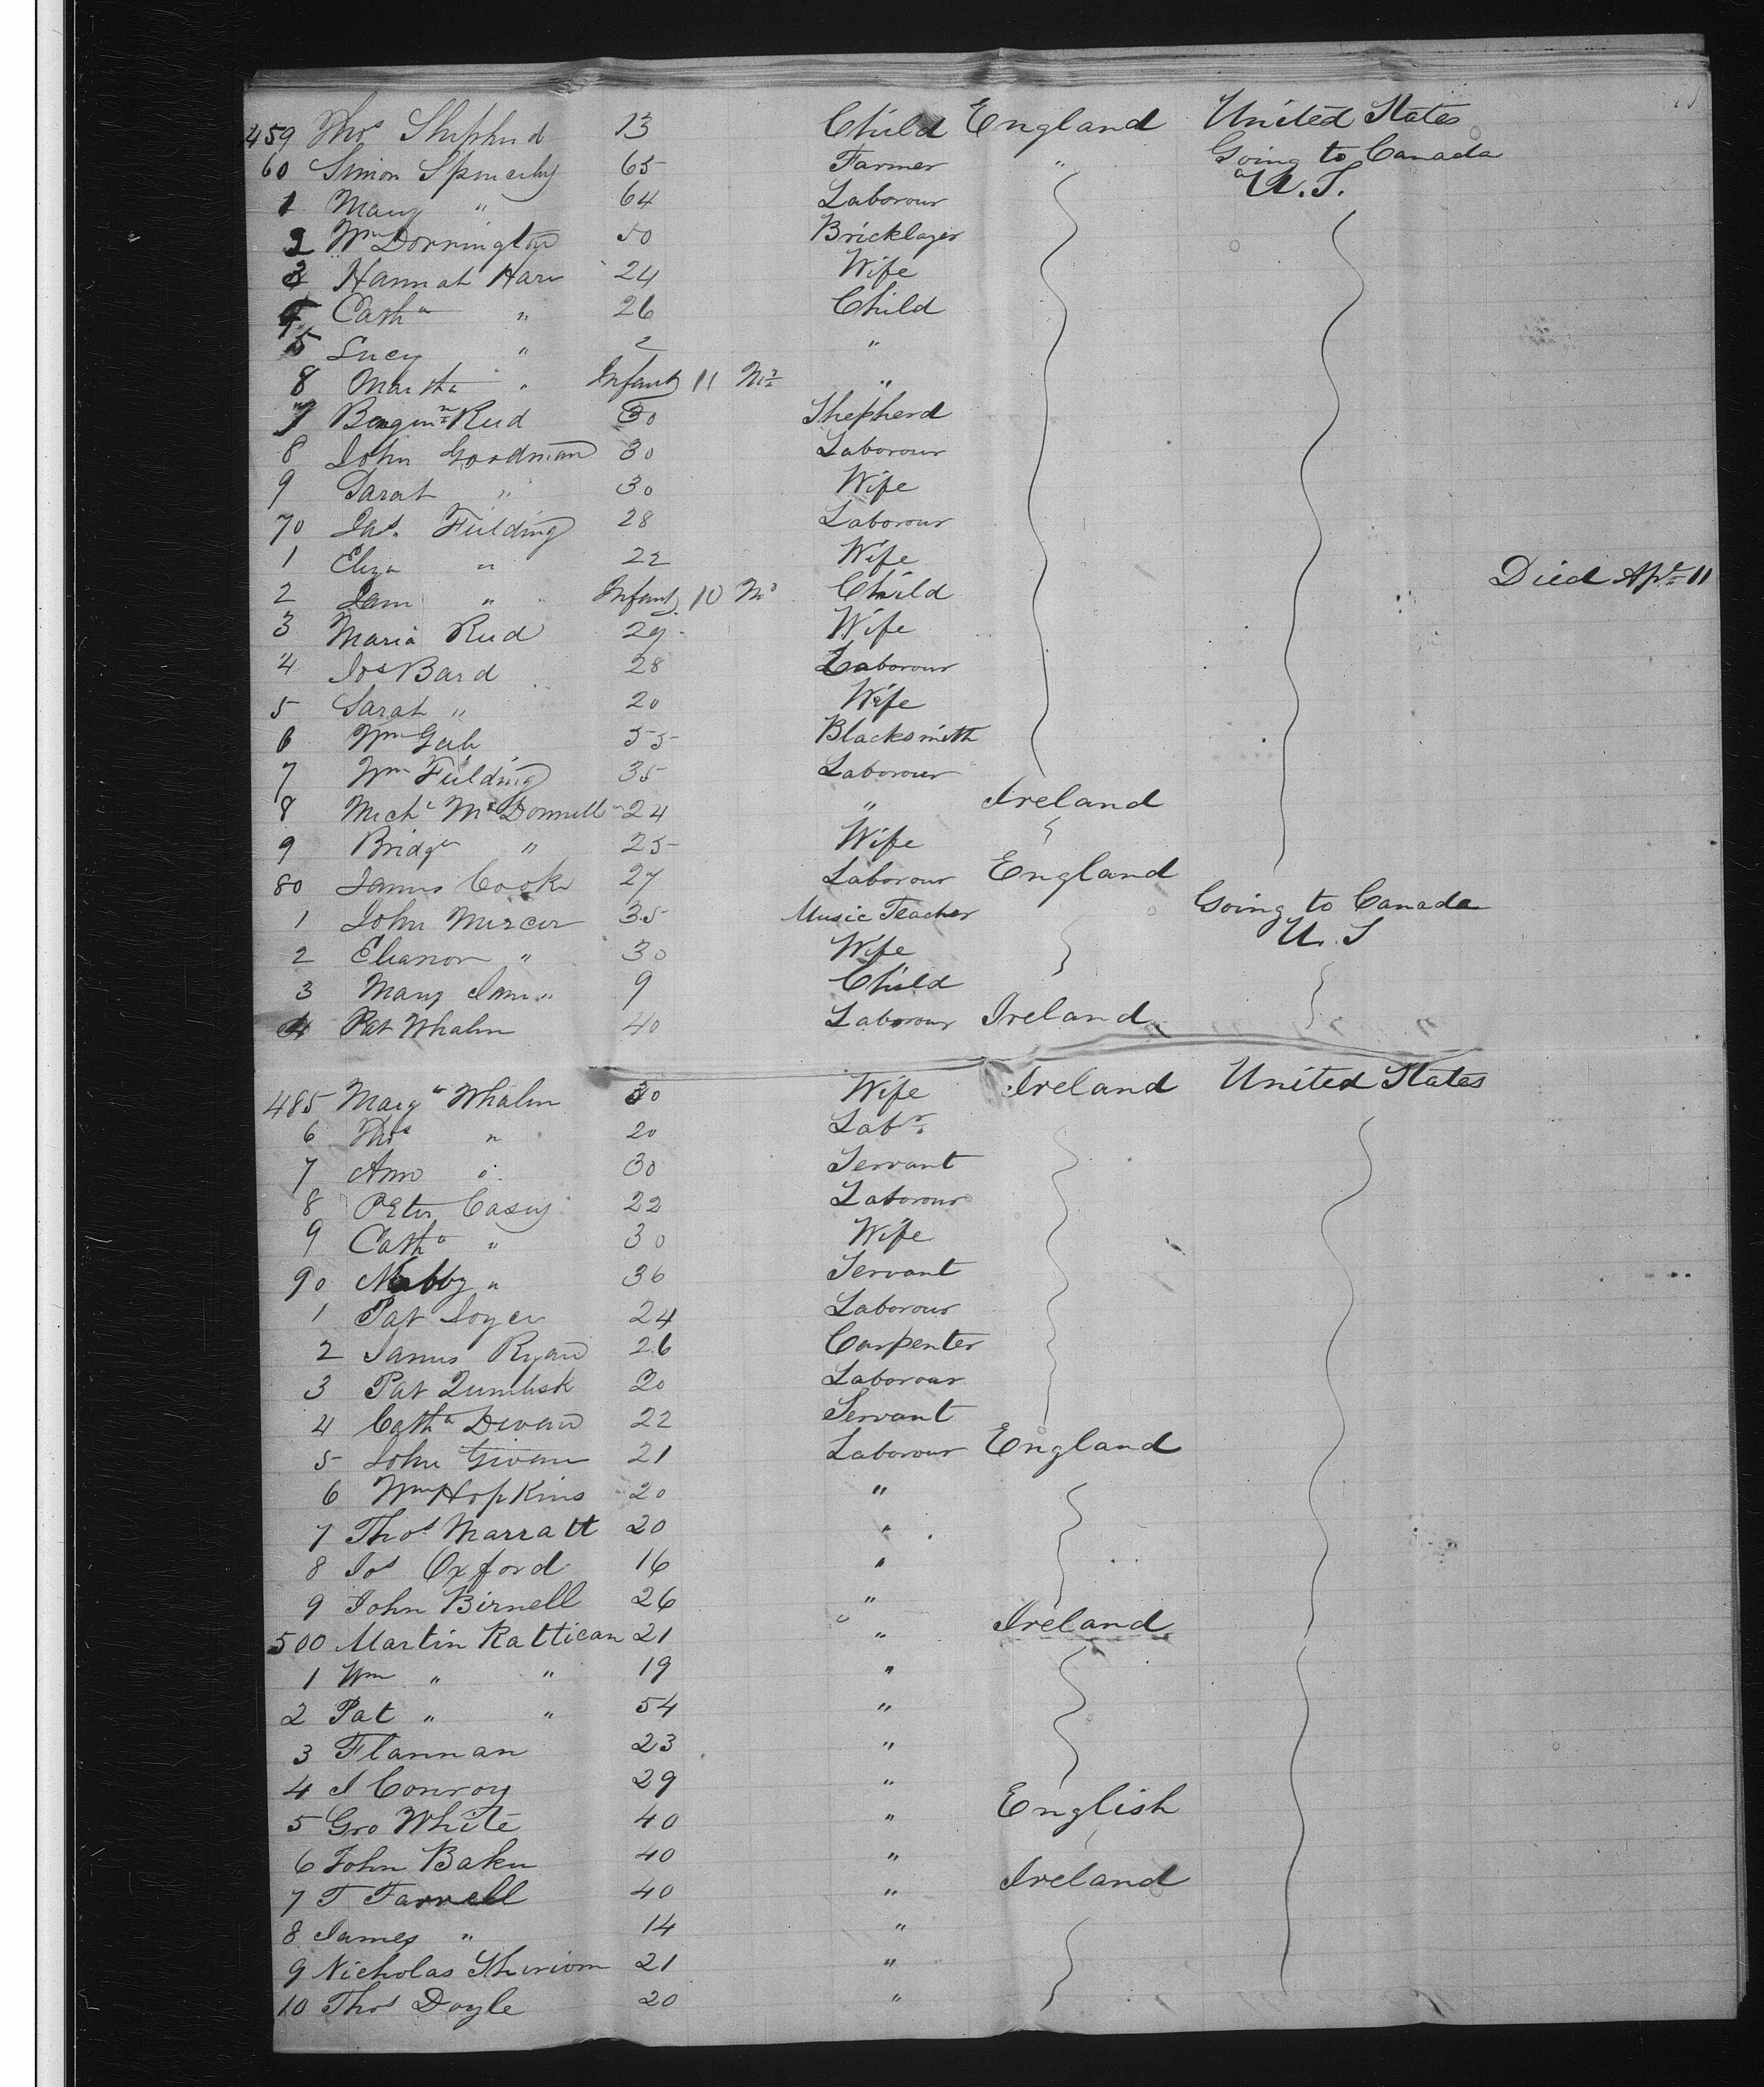 459 Thos Shepherd 13 Child England United States
60 Simon 65 Farmer " Going to Canada
1 Mary " 64 Laborour U.S.
2 Wm Dornington 50 Bricklayer
3 Hannah Hare 24 Wife
4 Catha " 26 Child
5 Lucy " 2 "
8 Martha " Infant 11 Ms "
7 Benjmn Reid 30 Shepherd
8 John Goodman 30 Laborour
9 Sarah " 30 Wife
70 Jas. Fielding 28 Laborour
1 Eliza " 22 Wife
2 Jam " Infant 10 Mo Child Died Apl 11
3 Maria Reid 29 Wife
4 Jos Bard 28 Laborour
5 Sarah " 20 Wife
6 Wm 55 Blacksmith
7 Wm Fielding 35 Laborour
8 Michl McDonnell 24 " Ireland
9 Bridgt " 25 Wife
80 James Cooke 27 Laborour England
1 John Mercer 35 Music Teacher Going to Canada
2 Eleanor " 30 Wife U.S
3 Mary Jane " 9 Child
4 Pat Whalen 40 Laborour Ireland
485 Margt Whalen 30 Wife Ireland United States
6 Thos " 20 Labr.
7 Ann " 30 Servant
8 Peter Casey 22 Laborour
9 Catha " 30 Wife
90 Nabby " 36 Servant
1 Pat Joyce 24 Laborour
2 James Ryan 26 Carpenter
3 Pat 20 Laborour
4 Catha Devan 22 Servant
5 John Givan 21 Laborour England
6 Wm Hopkins 20 "
7 Thos Marratt 20 "
8 Jos Oxford 16 "
9 John Birnell 26 "
500 Martin Rattican 21 " Ireland
1 Wm " " 19 "
2 Pat " " 54 "
3 Flannan 23 "
4 J Conroy 29 "
5 Geo White 40 " English
6 John Baker 40 "
7 T Farrell 40 " Ireland
8 James " 14 "
9 Nicholas 21 "
10 Thos Doyle 20 "